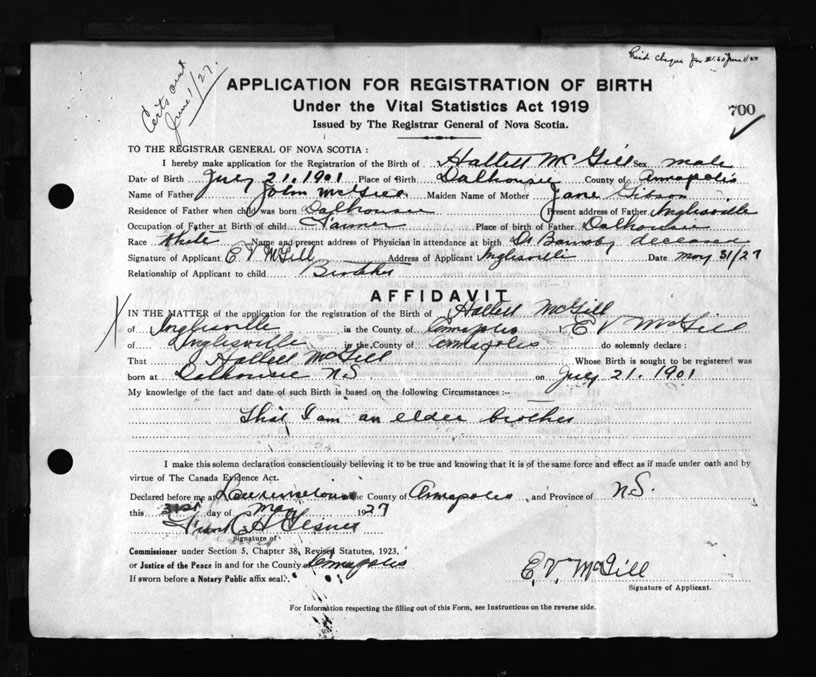 Certs out
June 1/27.
Paid Cheque for $1.50 June 1/27
APPLICATION FOR REGISTRATION OF BIRTH
Under the Vital Statistics Act 1919
Issued by The Registrar General of Nova Scotia.
700
TO THE REGISTRAR GENERAL OF NOVA SCOTIA :
I hereby make application for the Registration of the Birth of Hallett McGill Sex male
Date of Birth July 21, 1901 Place of Birth Dalhousie County of Annapolis
Name of Father John McGill Maiden Name of Mother Jane Gibson
Residence of Father when child was born Dalhousie Present address of Father Inglisville
Occupation of Father at Birth of child Farmer Place of birth of Father Dalhousie
Race White Name and present address of Physician in attendance at birth Dr Barnaby deceased
Signature of Applicant E V McGill Address of Applicant Inglisville Date May 31/27
Relationship of Applicant to child Brother
AFFIDAVIT
IN THE MATTER of the application for the registration of the Birth of Hallett McGill
of Inglisville in the County of Annapolis I, E V McGill
of Inglisville in the County of Annapolis do solemnly declare :
That Hallett McGill Whose Birth is sought to be registered was
born at Dalhousie N S on July 21, 1901
My knowledge of the fact and date of such Birth is based on the following Circumstances :-
That I am an elder brother
I make this solemn declaration conscientiously believing it to be true and knowing that it is of the same force and effect as if made under oath and by
virtue of The Canada Evidence Act.
Declared before me at Lawrencetown the County of Annapolis and Province of N.S.
this 31st day of May 1927
Frank H Gesner
Signature of
Commissioner under Section 5, Chapter 38, Revised Statutes, 1923,
or Justice of the Peace in and for the County Annapolis
If sworn before a Notary Public affix seal.
E. V. McGill
Signature of Applicant.
For Information respecting the filling out of this Form, see Instructions on the reverse side.